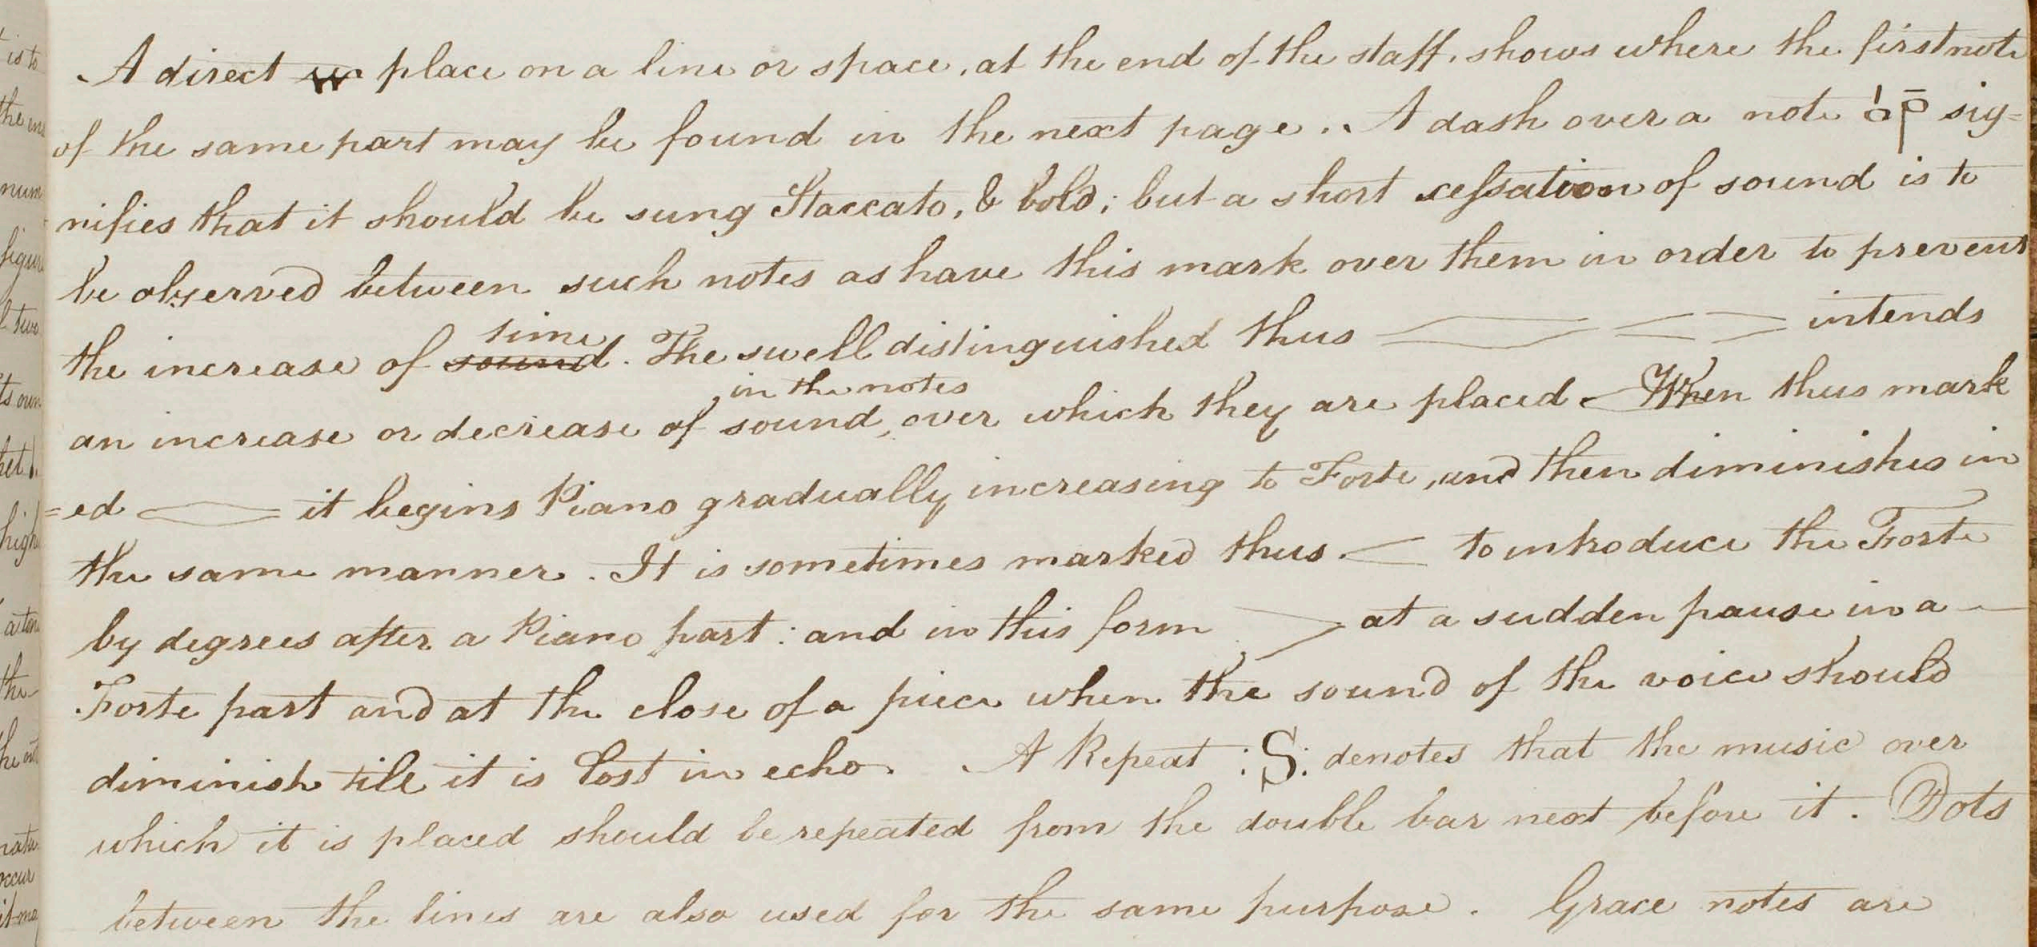 A direct w place on a line or space, at the end of the staff, shows where the first note
of the same part may be found in the next page. A dash over a note sig=
nifies that it should be sung Staccato, & bold; but a short cessation of sound is to
be observed between such notes as have this mark over them in order to prevent
time
the increase of sound. The swell distinguished thus intends
in the notes
an increase or decrease of sound, over which they are placed - When thus mark
=ed it begins Piano gradually increasing to Forte, and then diminishes in
the same manner. It is sometimes marked thus < to introduce the Forte
by degrees after a Piano part: and in this form > at a sudden pause in a
Forte part and at the close of a piece when the sound of the voice should
diminish till it is lost in echo. A Repeat :S: denotes that the music over
which it is placed should be repeated from the double bar next before it. Dots
between the lines are also used for the same purpose. Grace notes are